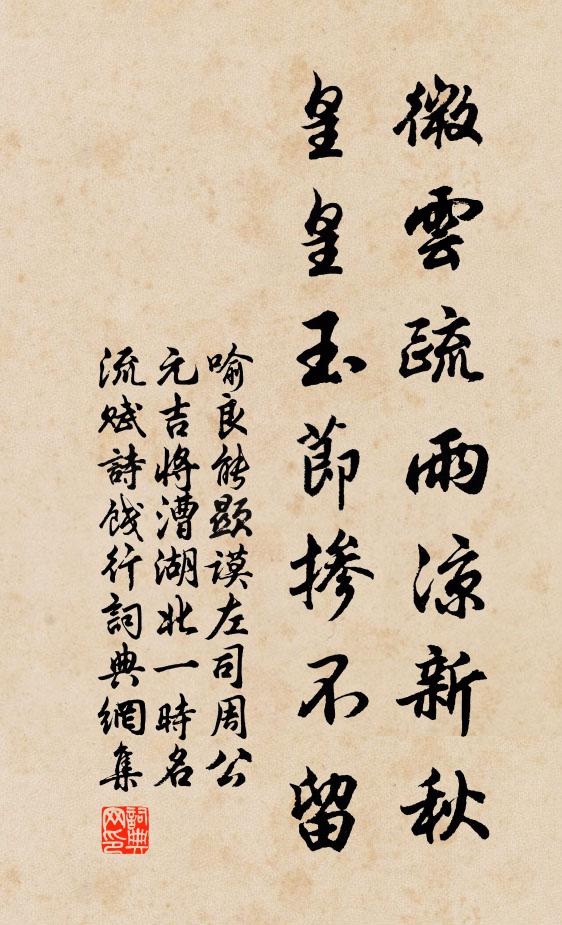 微雲疏雨涼新秋
皇皇玉節摻不留
喻良能顯謨左司周公
元吉將漕湖北一時名
流賦詩餞行詞典網集
詞典
网印